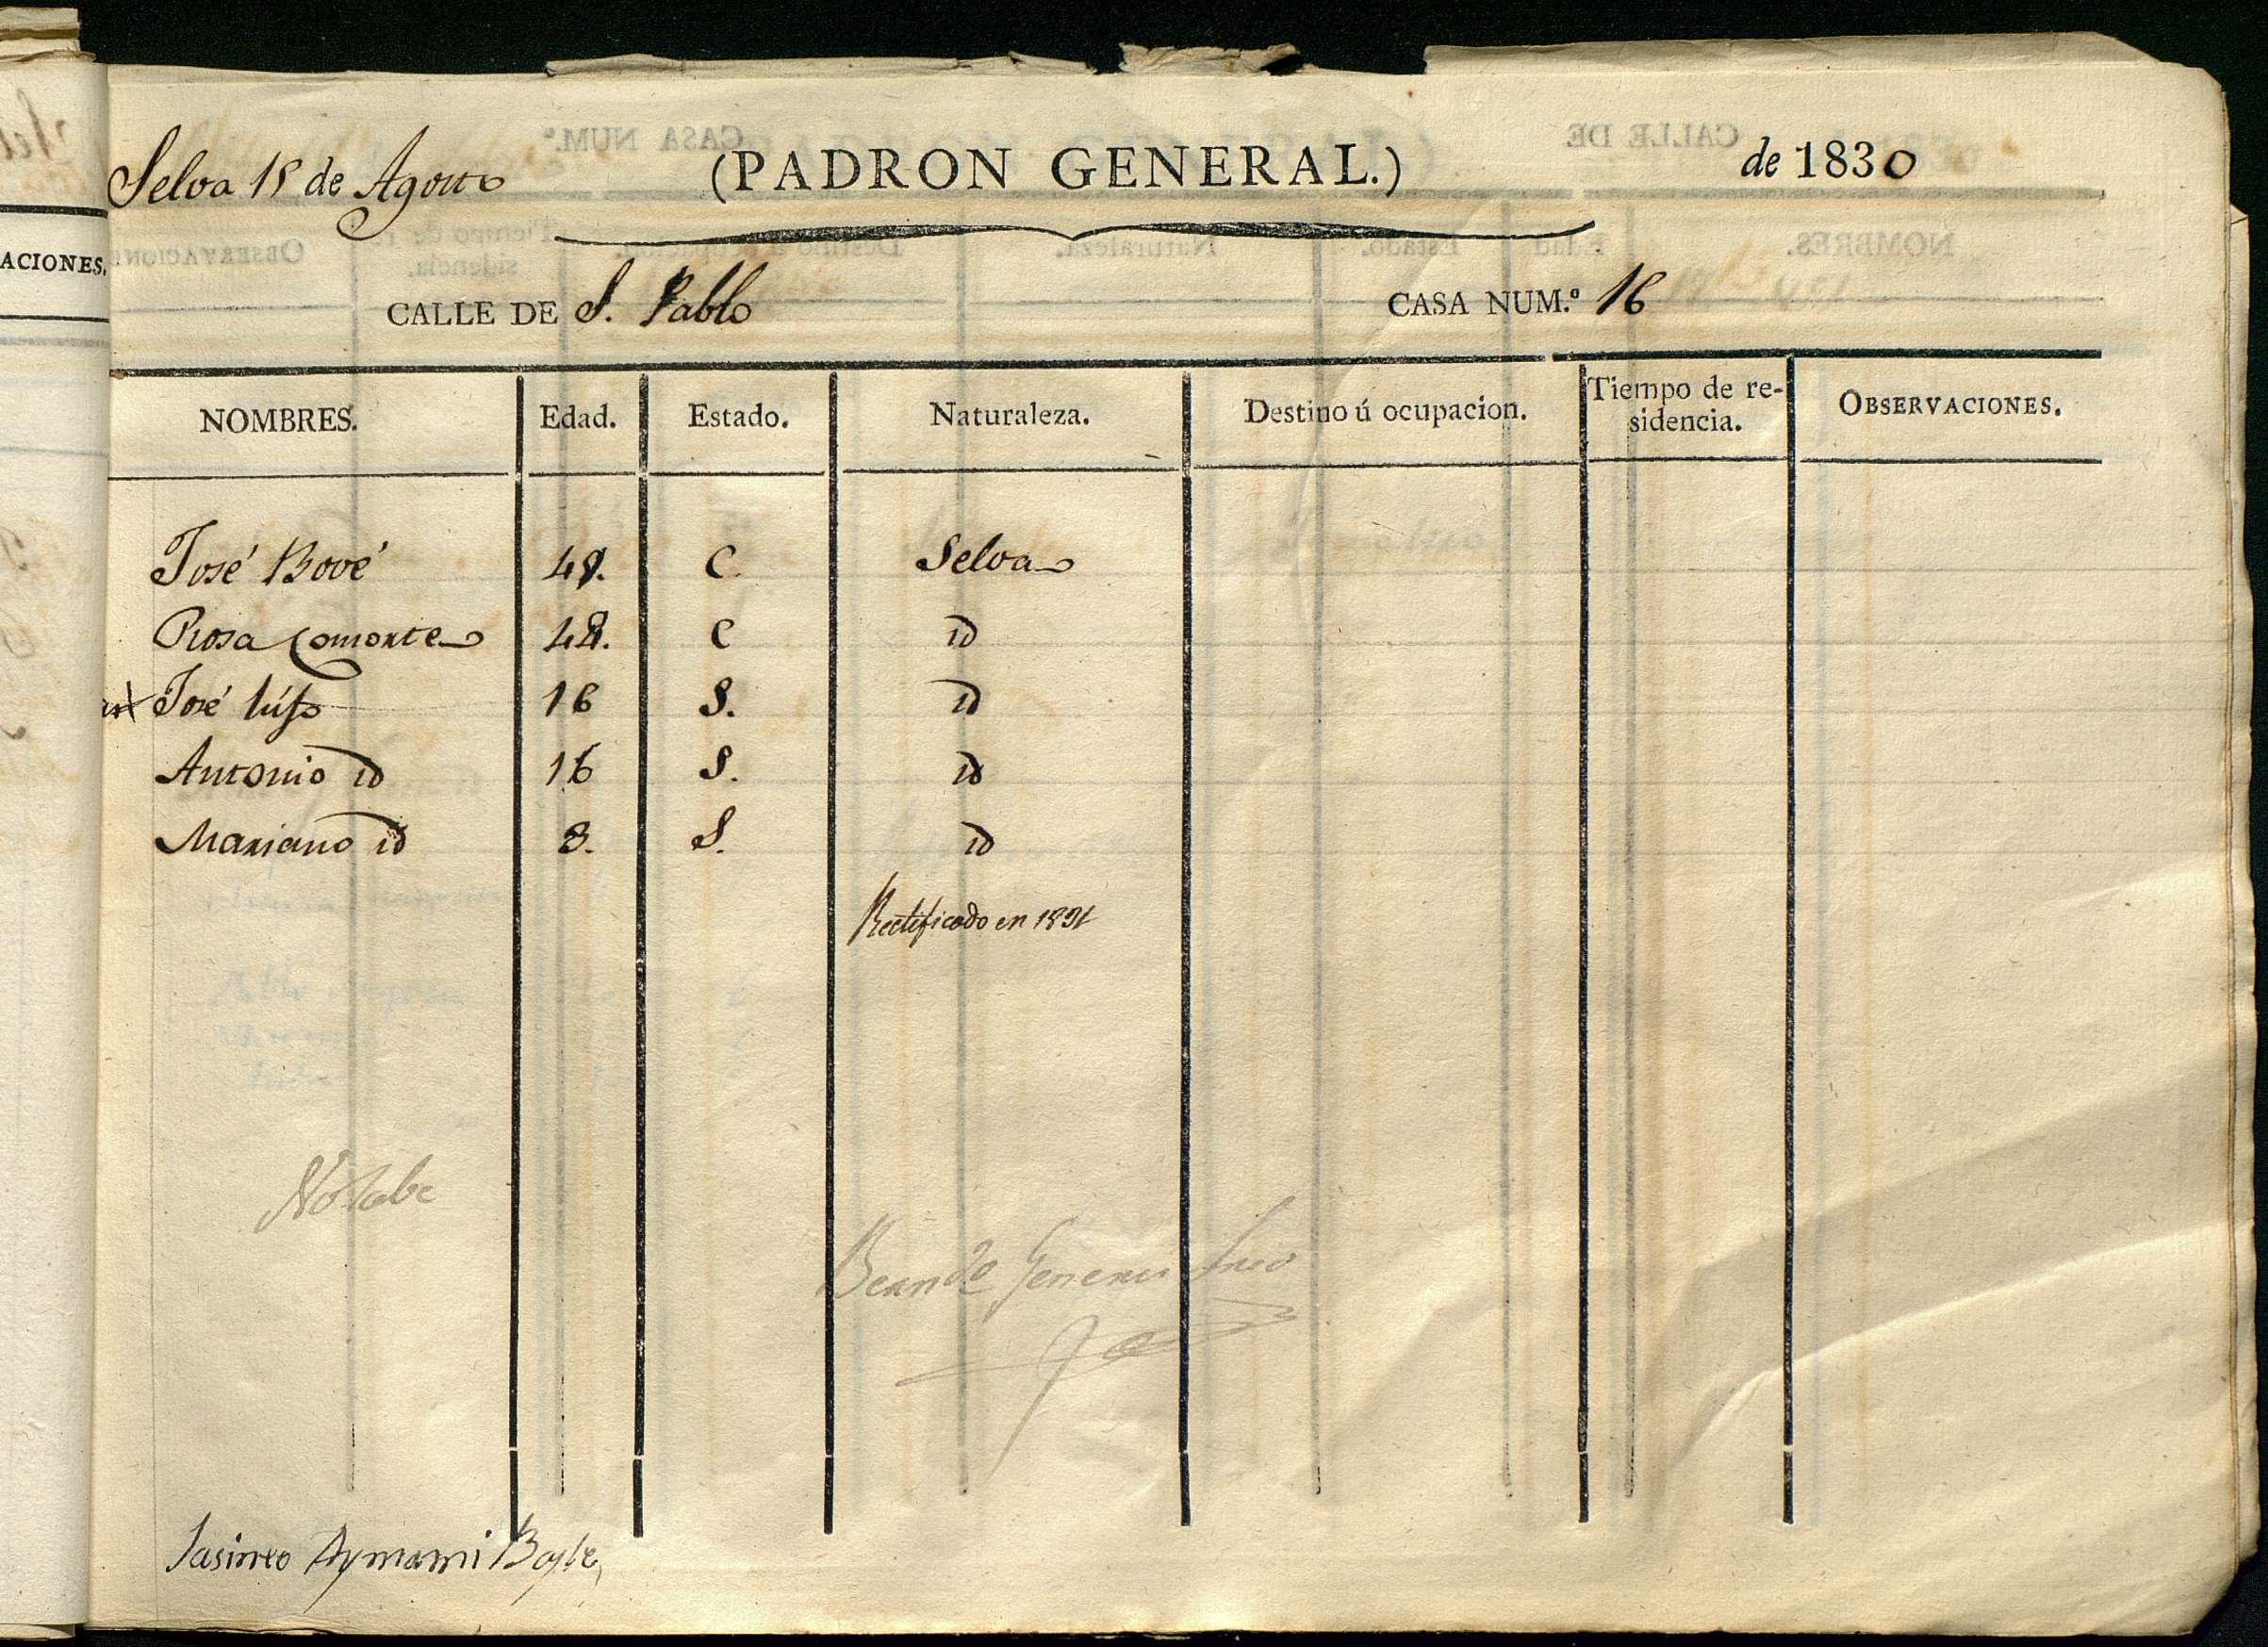 ACIONES.
Selva 18 de Agosto (PADRON GENERAL.) de 1830
CALLE DE S. Pablo CASA NUM.º 16
NOMBRES. Edad. Estado. Naturaleza. Destino ú ocupacion. Tiempo de re-sidencia. OBSERVACIONES.
José Bové C. Selva
Rosa Comorte C id
José hijo 16 S. id
Antonio id 16 S. id
Mariano id 8. S. id
Rectificado en 1831
Jasinto Aymami Bayle